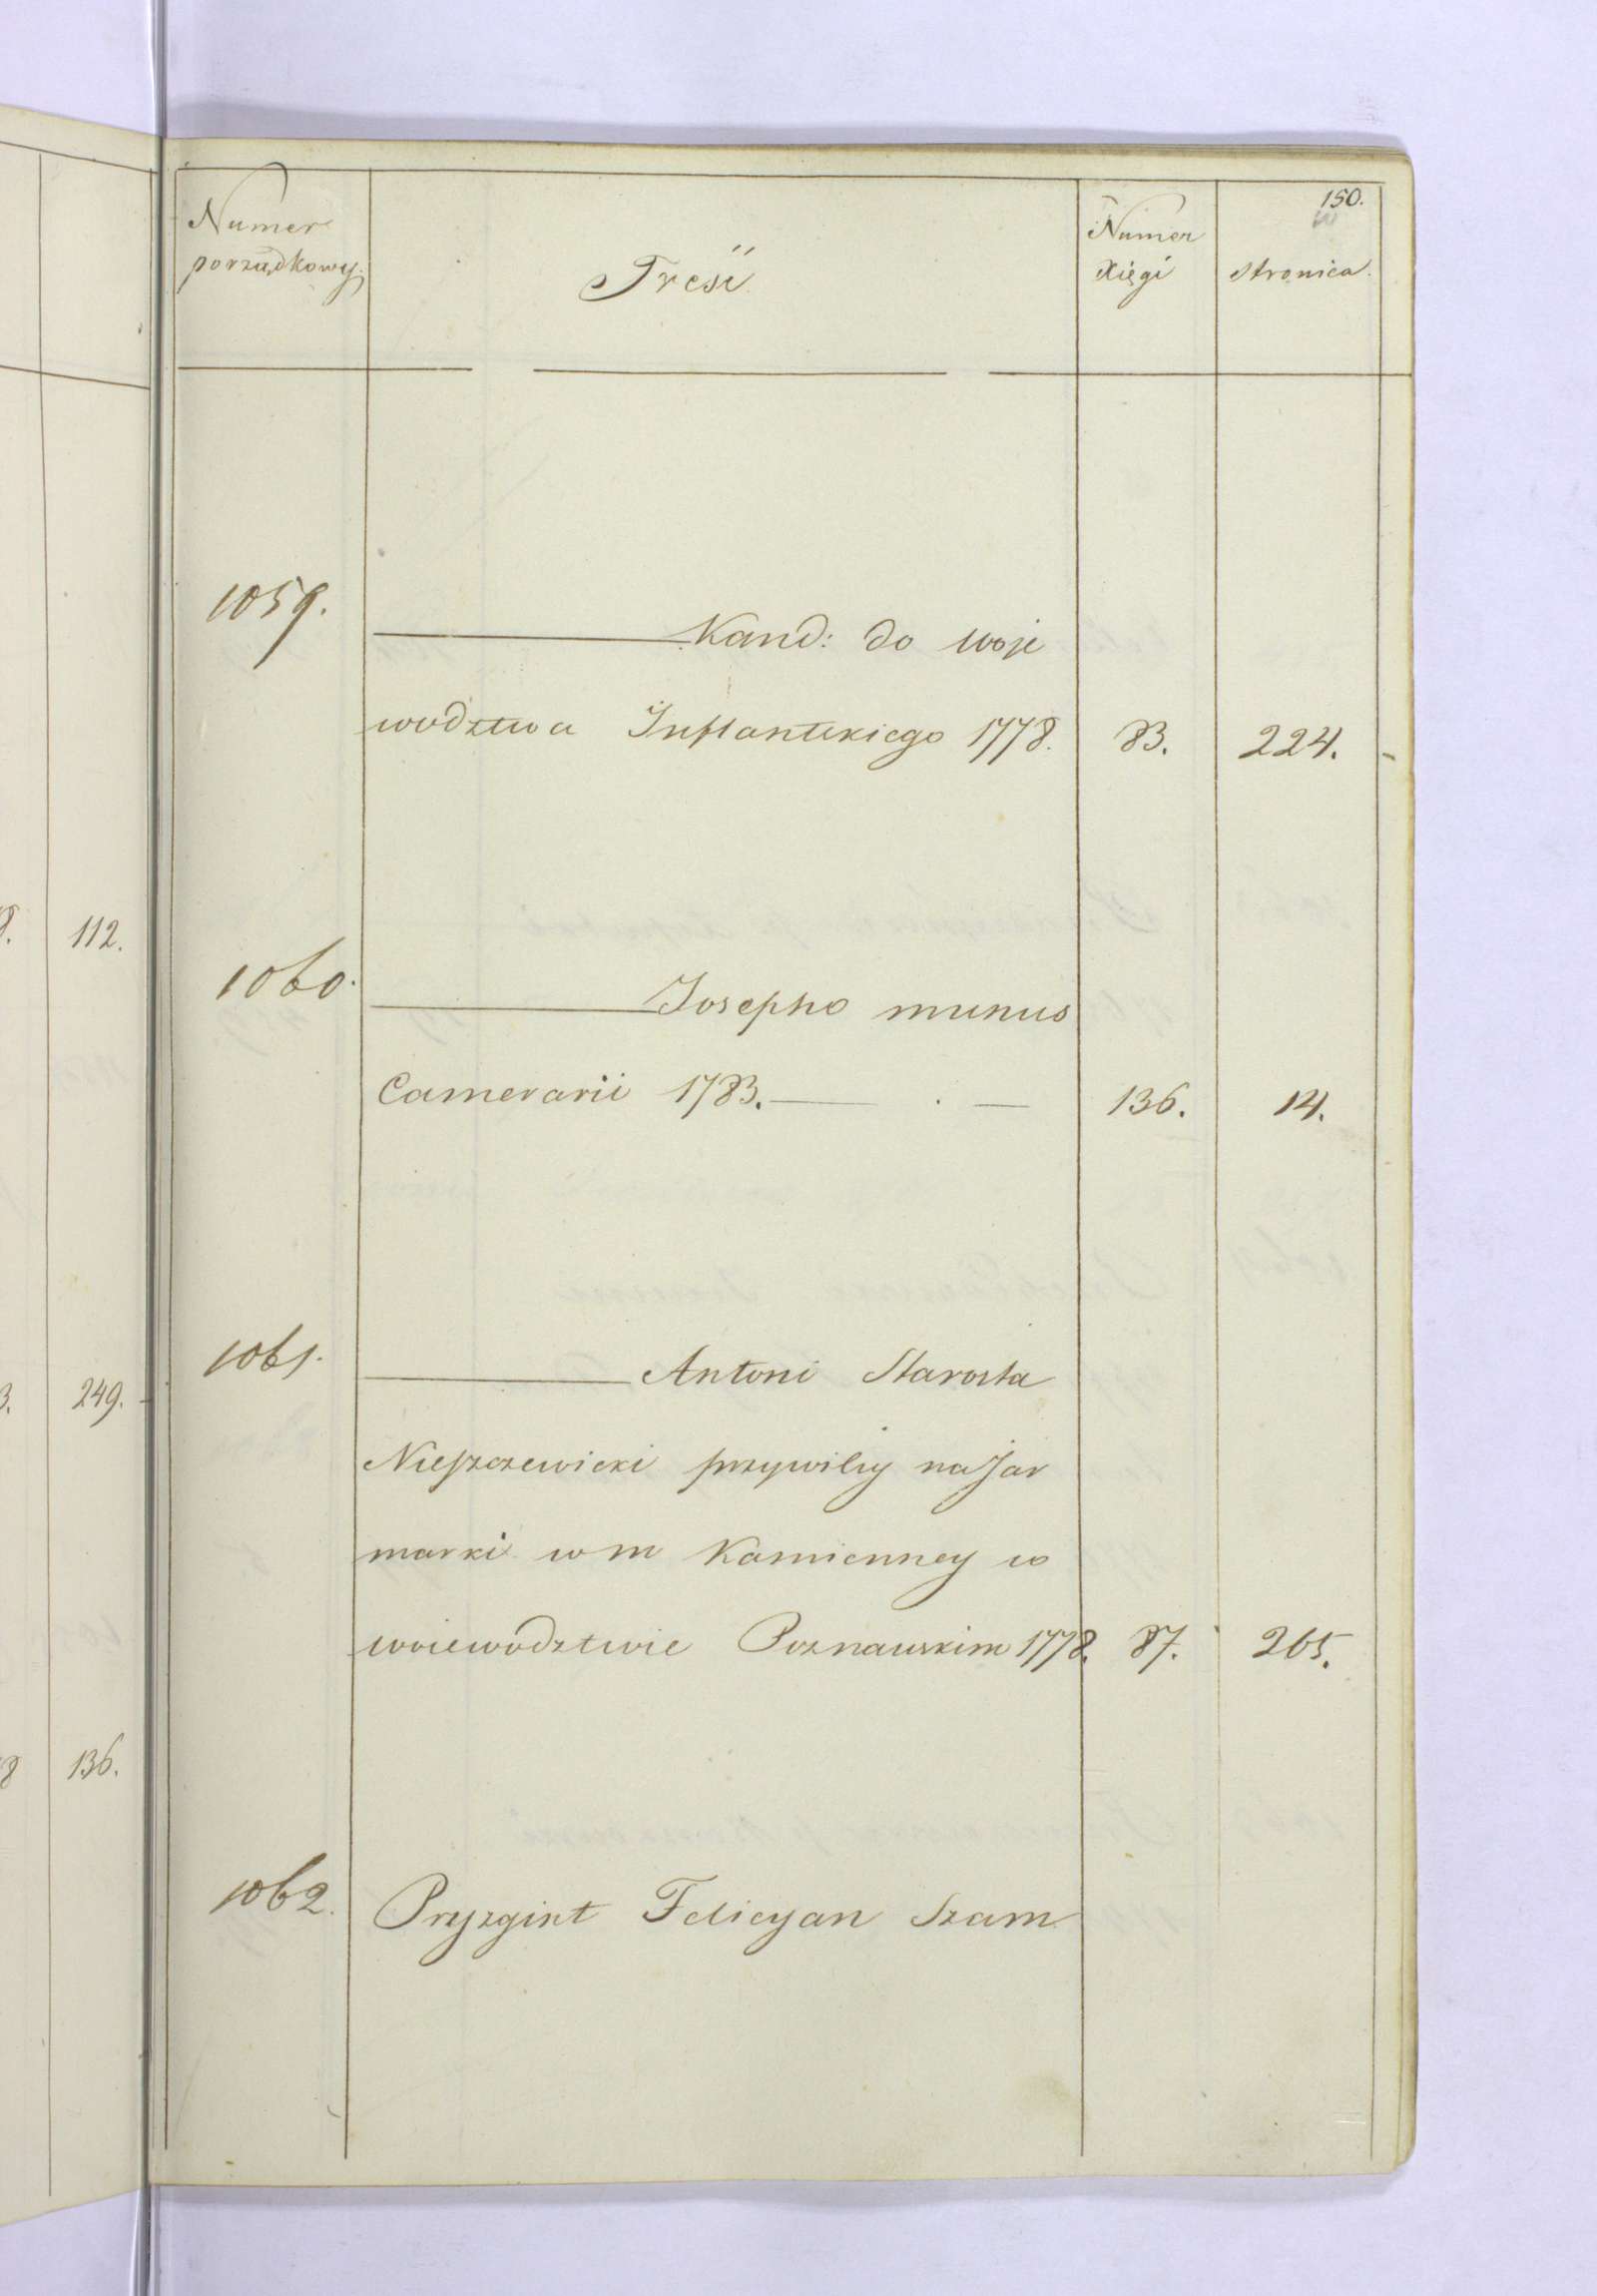 150.
Numer porządkowy.
Treść
Numer Xięgi
stronica.
1059.
Kand: do woje
wodztwa Inflantskiego 1778. 83. 224.
112.
1060.
Josepho munus
Camerarii 1783. 136. 14.
1061.
Antoni Starosta
249.
Nieszczewicki przywiley na Jar
marki w m Kamienney w
woiewodztwie Poznanskim 1778. 87. 265.
136.
1062. Pryzgint Felicyan Szam